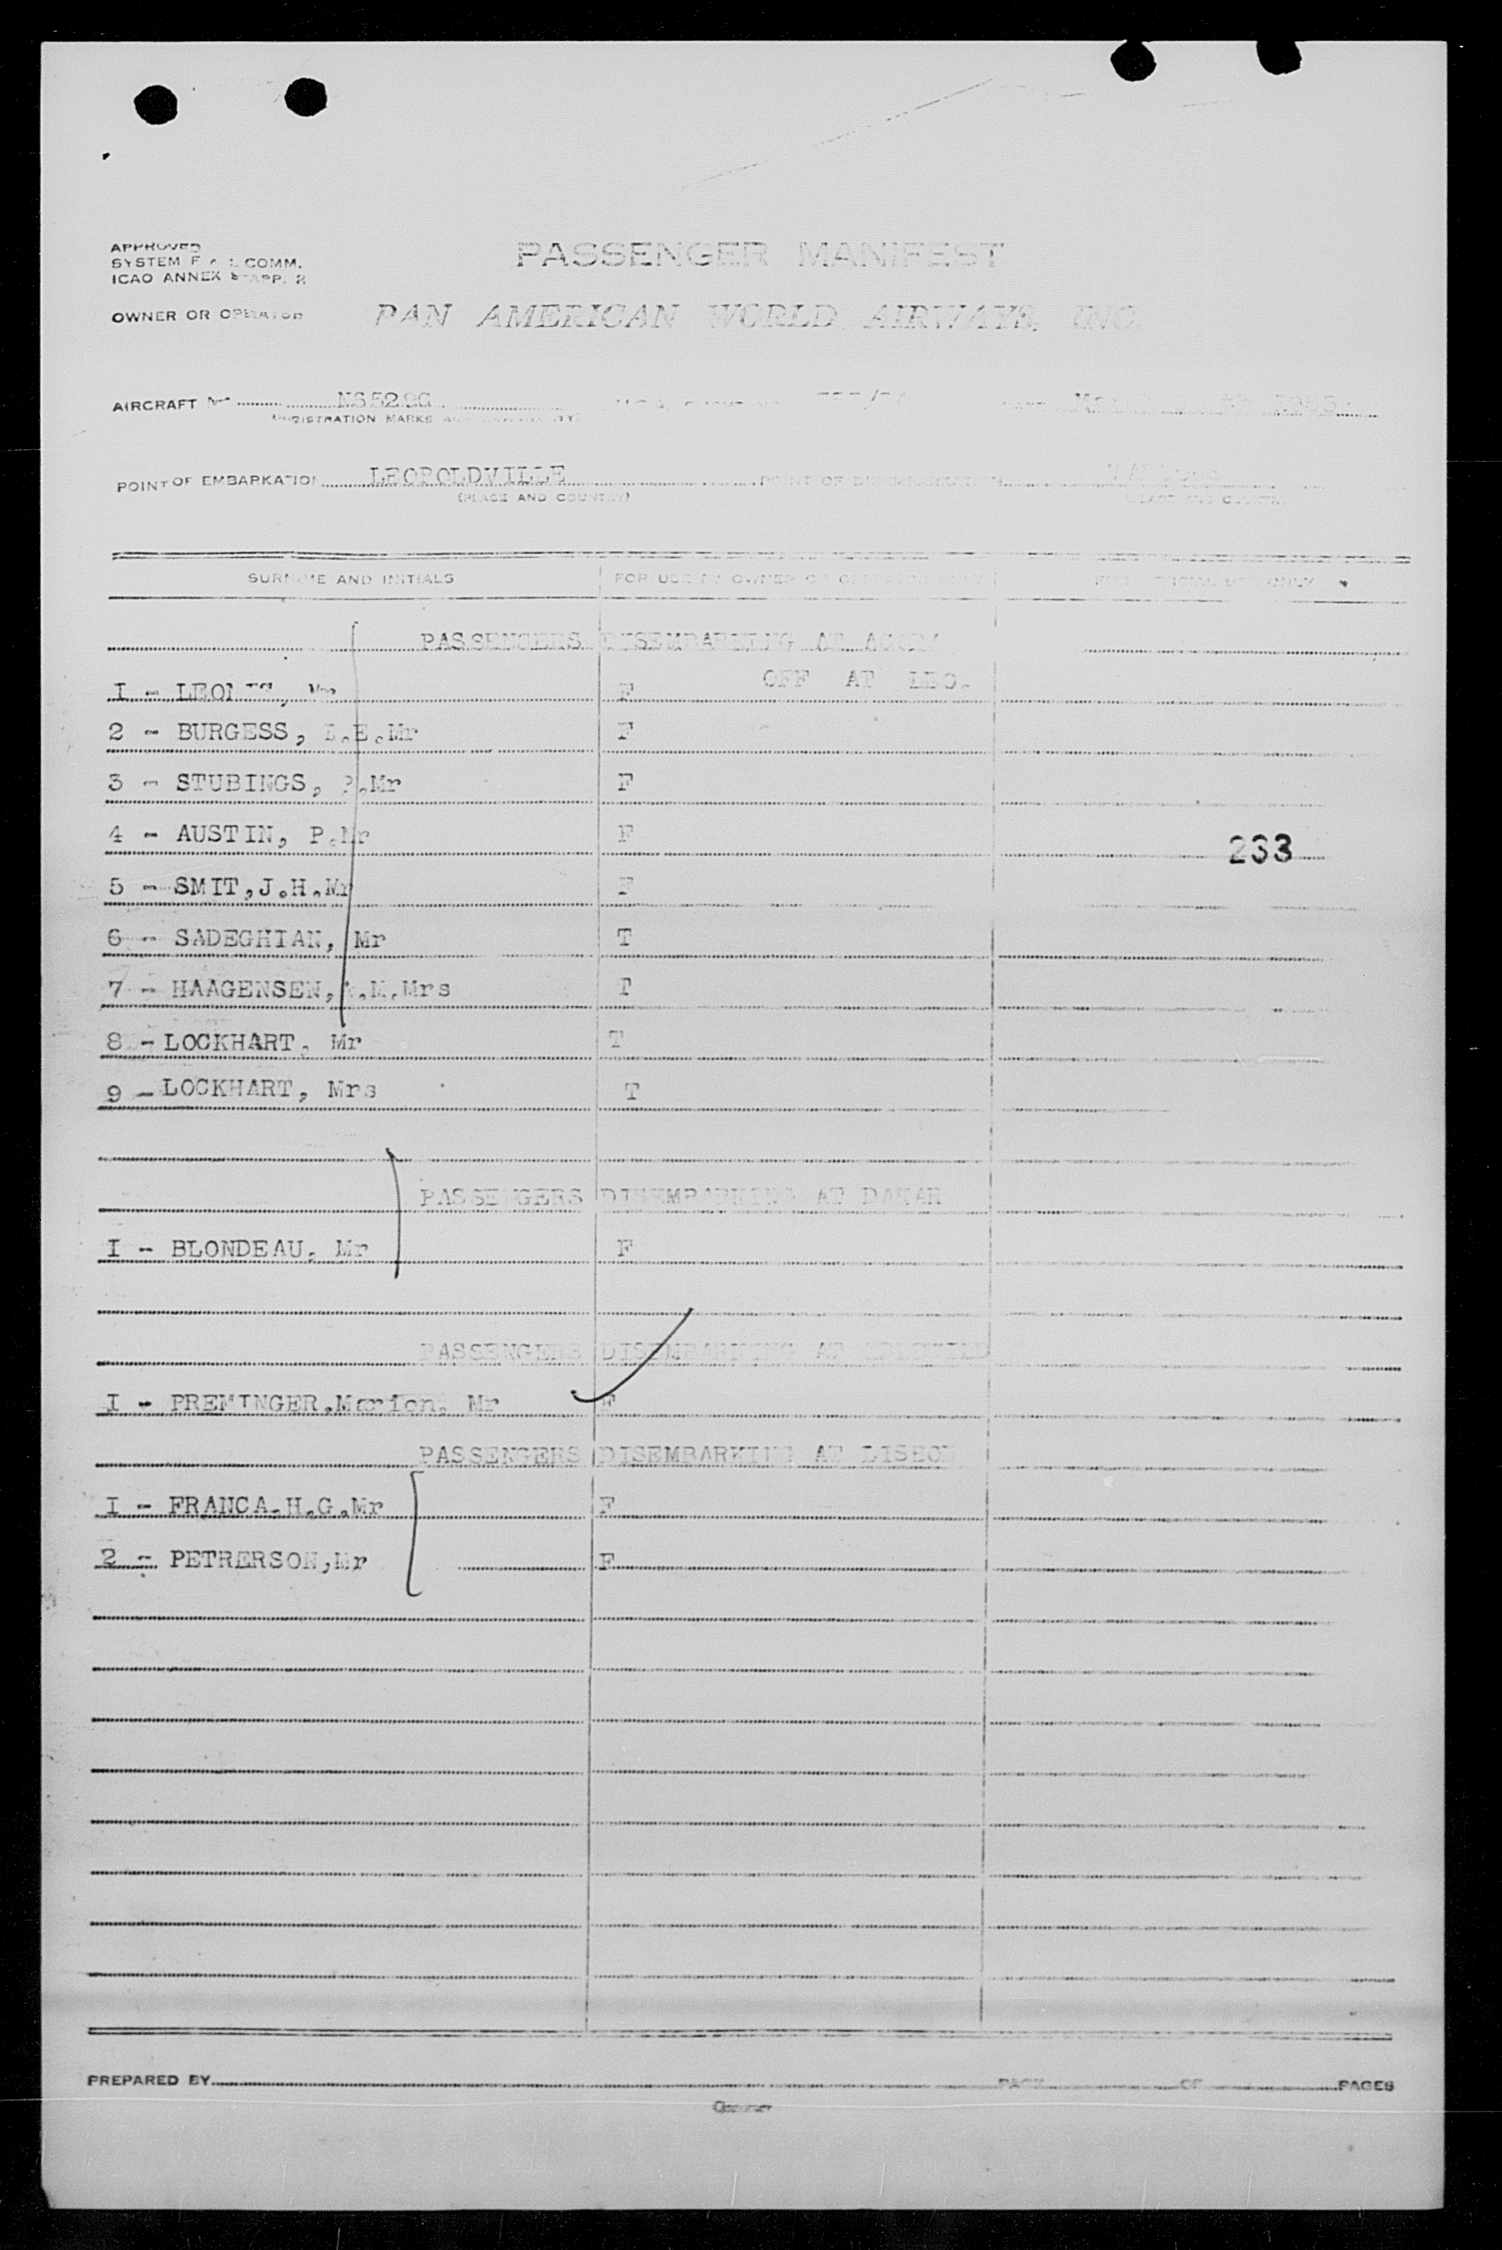 APPROVED
SYSTEM F COMM.
ICAO ANNEX APP. 2
PASSENGER MANIFEST
OWNER OR OPERATOR PAN AMERICAN WORLD AIRWAYS, INC.
AIRCRAFT
REGISTRATION MARKS
POINT OF EMBARKATION LEOPOLDVILLE POINT OF
(PLACE AND COUNTRY)
SURNAME AND INITIALS FOR USE BY OWNER OR ONLY
PASSENGERS DISEMBARKING AT ACCRA
OFF AT LEO.
I - F
2 - BURGESS, .E.Mr F
3 - STUBINGS, .Mr F
4 - AUSTIN, P.Mr F
233
5 - SMIT,J.H.Mr F
6 - SADEGHIAN, Mr T
7 - HAAGENSEN, .M.Mrs T
8 - LOCKHART, Mr T
9 - LOCKHART, Mrs T
PASSENGERS DISEMBARKING AT DAKAR
I - BLONDEAU, Mr F
PASSENGERS DISEMBARKING AT
I - PREMINGER,Marion, Mr F
PASSENGERS DISEMBARKING AT LISBON
I - FRANCA.H.G.Mr F
2 - PETRERSON,Mr F
PREPARED BY PAGE OF PAGES